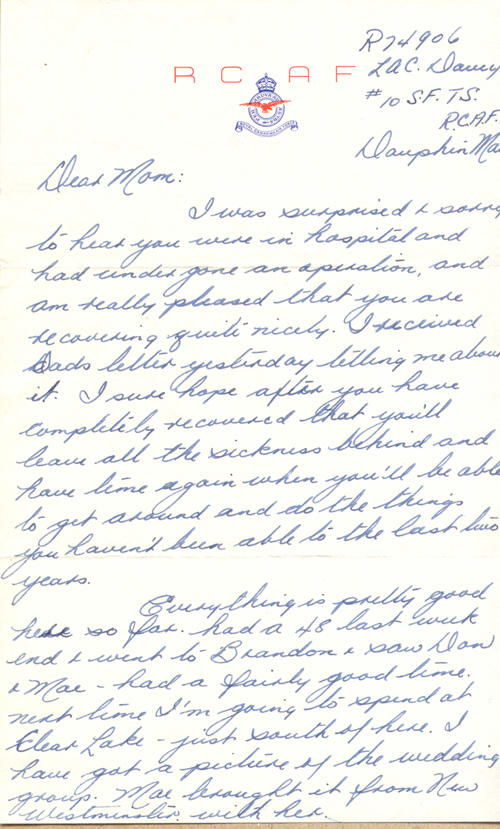 R74906
LAC. Davey
RCAF
#10 S.F.T.S.
R.C.A.F.
Dauphin Ma
Dear Mom:
I was surprised & sorry
to hear you were in hospital and
had under gone an operation, and
am really pleased that you are
recovering quite nicely. I received
Dads letter yesterday telling me about
it. I sure hope after you have
completely recovered that you'll
leave all the sickness behind and
have time again when you'll be able
to get around and do the things
you haven't been able to the last two
years.
Everything is pretty good
here so far. had a 48 last week
end & went to Brandon & saw Don
& Mae - had a fairly good time.
next time I'm going to spend at
Clear Lake - just south of here. I
have got a picture of the wedding
group. Mae brought it from New
Westminster with her.